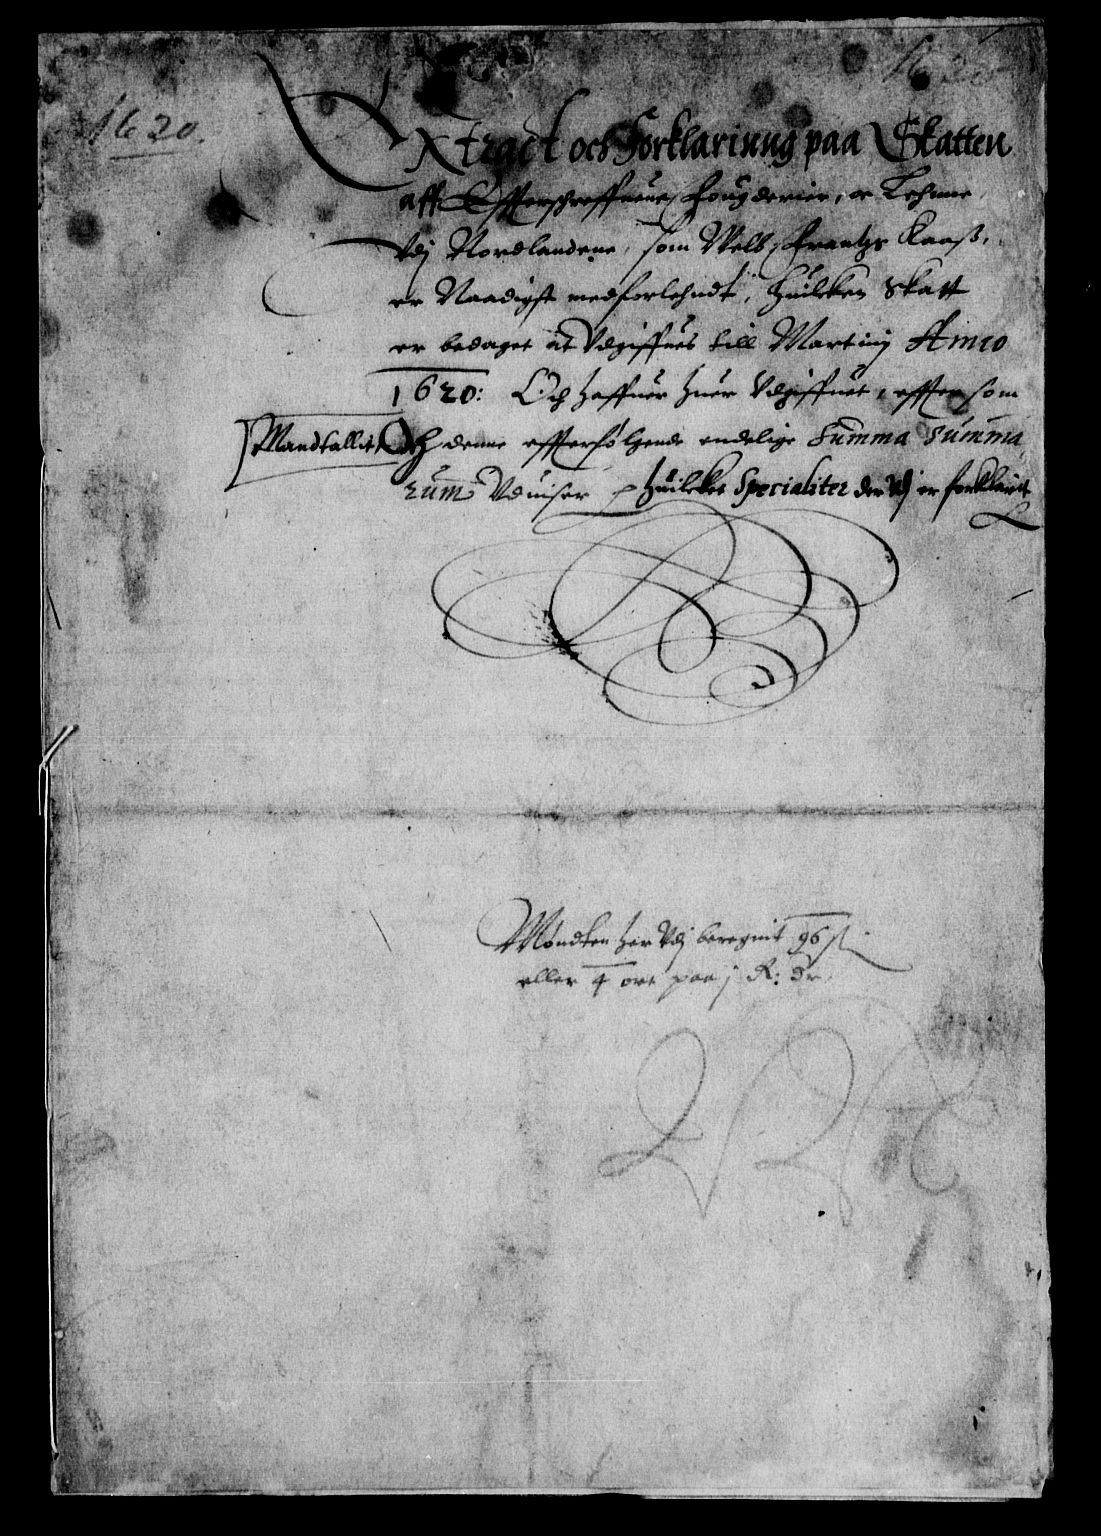 1620.
Extract och Forklarinng paa Skatten
aff Effterschreffneue Fougderier, oc Lehnne
Vdj Nordlandene, som Velb: Frantzs Kaaß,
er Naadigst medforlehndt, Huilcken Skatt
er bedaget at Vdgiffues till Martinj Anno
1620: Och haffuer huer Vdgiffuet, effter som
Mandtallit Och denne effterfølgende endelige Summa Summa
rum Vduiser, Huilcket Specialiter der Vdj er forklarit
Møndten her Vdj beregnit 96 ß
eller 4 ort paa j R: Dr.